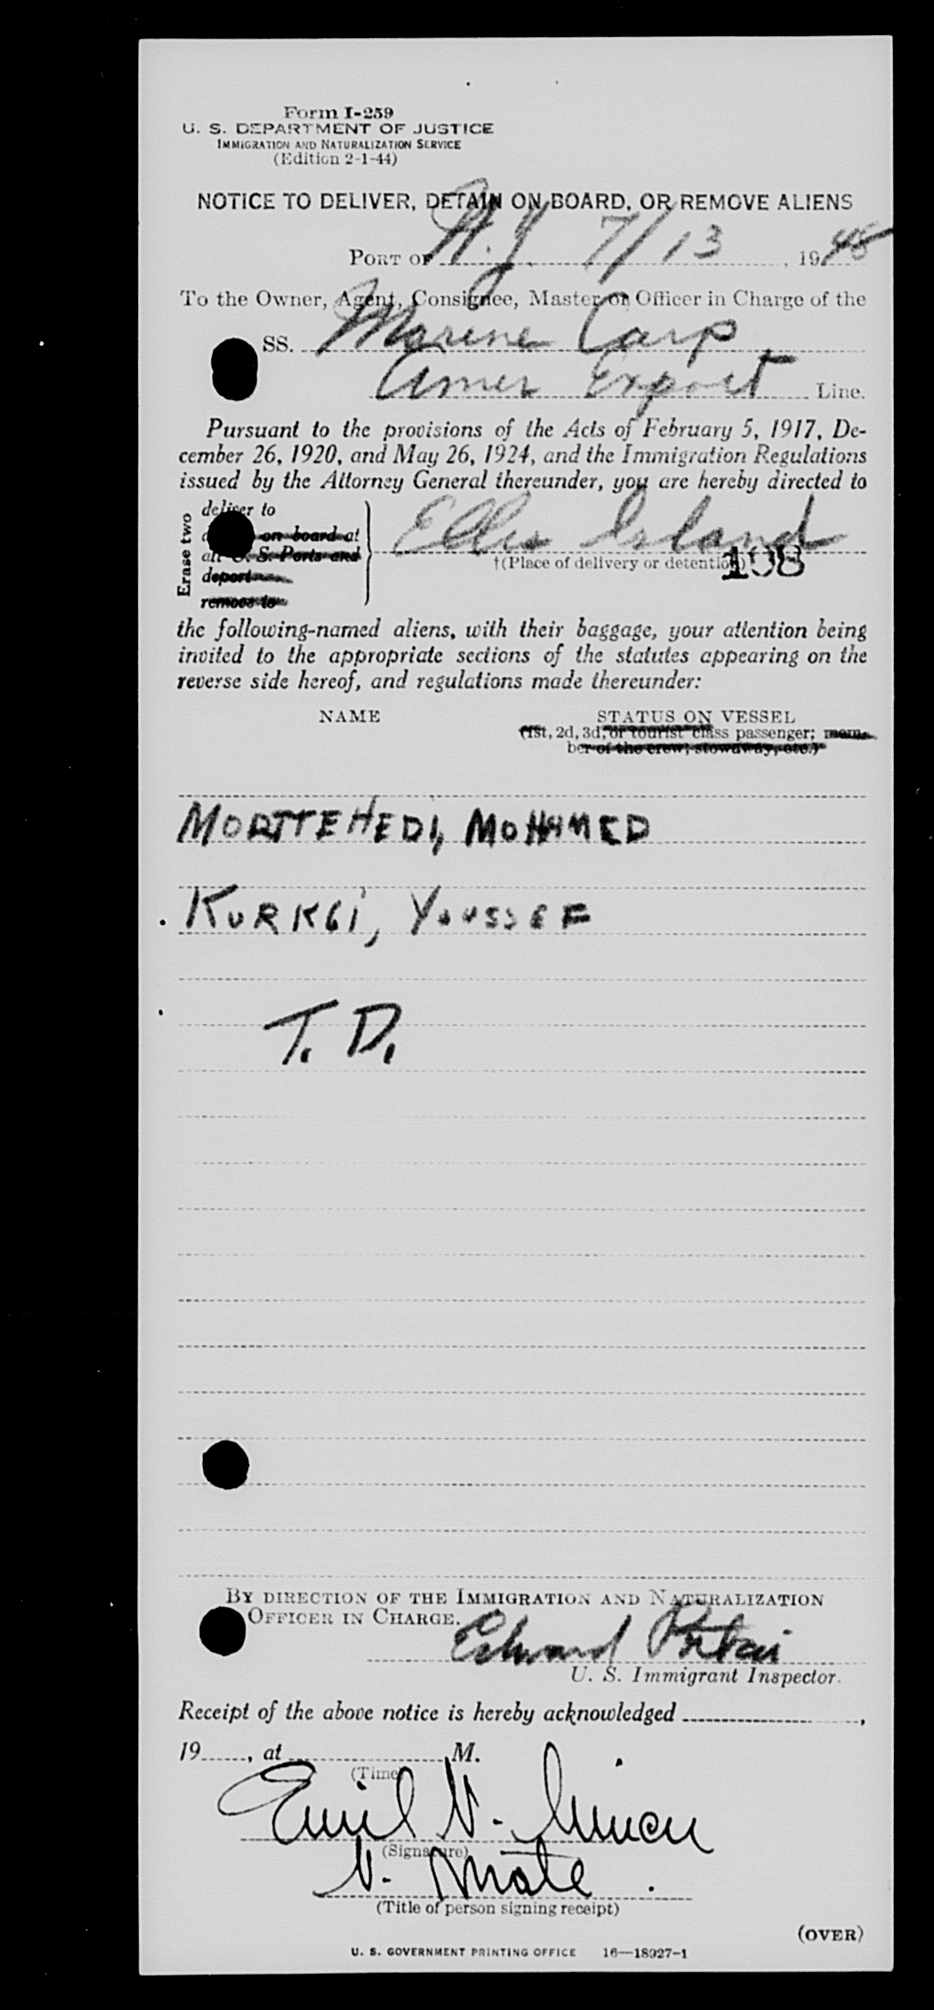 Form I-259
U. S. DEPARTMENT OF JUSTICE
IMMIGRATION AND NATURALIZATION SERVICE
(Edition 2-1-44)
NOTICE TO DELIVER, DETAIN ON BOARD, OR REMOVE ALIENS
PORT OF N.Y. 7/13, 1948
To the Owner, Agent, Consignee, Master or Officer in Charge of the
SS. Marine Carp
Amer Export Line.
Pursuant to the provisions of the Acts of February 5, 1917, De-
cember 26, 1920, and May 26, 1924, and the Immigration Regulations
issued by the Attorney General thereunder, you are hereby directed to
Erase two
deliver to
on board at
all U. S. Ports and
deport
remove to
Ellis Island
†(Place of delivery or detention)
108
the following-named aliens, with their baggage, your attention being
invited to the appropriate sections of the statutes appearing on the
reverse side hereof, and regulations made thereunder:
NAME STATUS ON VESSEL
(1st, 2d, 3d, or tourist class passenger; mem-
ber of the crew; stowaway, etc.)
MORTTEHEDI, MOHAMED
KURKGI, YOUSSEF
T. D.
BY DIRECTION OF THE IMMIGRATION AND NATURALIZATION
OFFICER IN CHARGE.
Edward
U. S. Immigrant Inspector.
Receipt of the above notice is hereby acknowledged ,
19 , at M.
(Time)
Emil N.
(Signature)
Mate
(Title of person signing receipt)
(OVER)
U. S. GOVERNMENT PRINTING OFFICE 16—18027-1